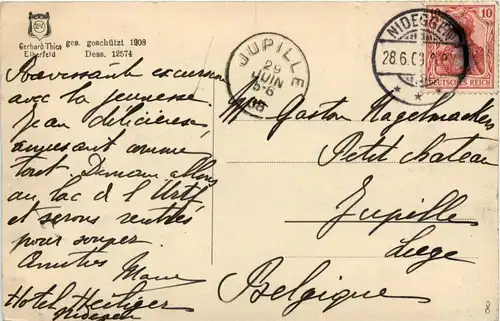 Gerhard Thien
Elberfeld
ges. geschützt 1908
Dess. 12574
JUPILLE
29
JUIN
5-6
08
NIDEGGEN
28.6.08
10
DEUTSCHES REICH
Ravissante excursion
avec la jeunesse.
Jean délicieux,
amusant comme
tout. Demain allons
au lac d l'Urft
et serons rentrés
pour souper.
Amitiés
Hotel Heiliger
Nideggen
Gaston Nagelmackers
Petit chateau
Jupille
Liege
Belgique
8